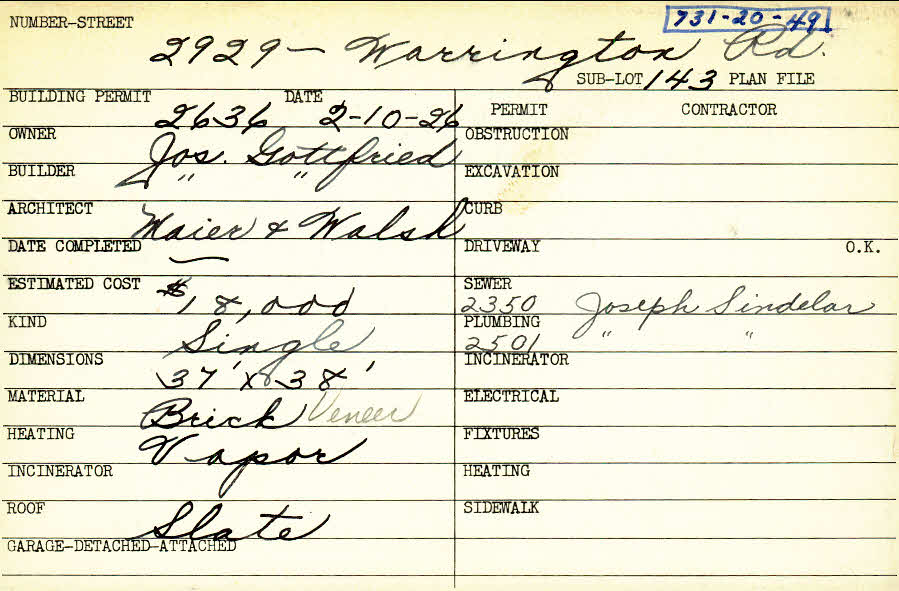 731-20-49
NUMBER-STREET
2929 - Warrington Rd.
SUB-LOT 143 PLAN FILE
BUILDING PERMIT 2636 DATE 2-10-26
PERMIT CONTRACTOR
OWNER Jos. Gottfried
OBSTRUCTION
BUILDER " "
EXCAVATION
ARCHITECT Maier & Walsh
CURB
DATE COMPLETED —
DRIVEWAY O.K.
ESTIMATED COST $18,000
SEWER
2350 Joseph Sindelar
KIND Single
PLUMBING
2501 " "
DIMENSIONS 37' x 38'
INCINERATOR
MATERIAL Brick Veneer
ELECTRICAL
HEATING Vapor
FIXTURES
INCINERATOR
HEATING
ROOF Slate
SIDEWALK
GARAGE-DETACHED-ATTACHED